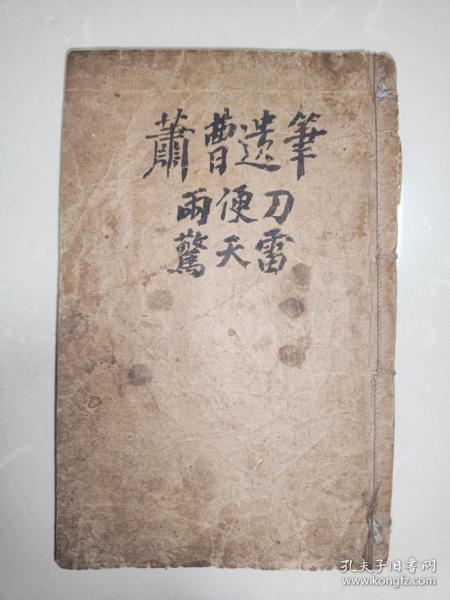 蕭曹遺筆
兩便刀
驚天雷
孔夫子旧书网
www.kongfz.com